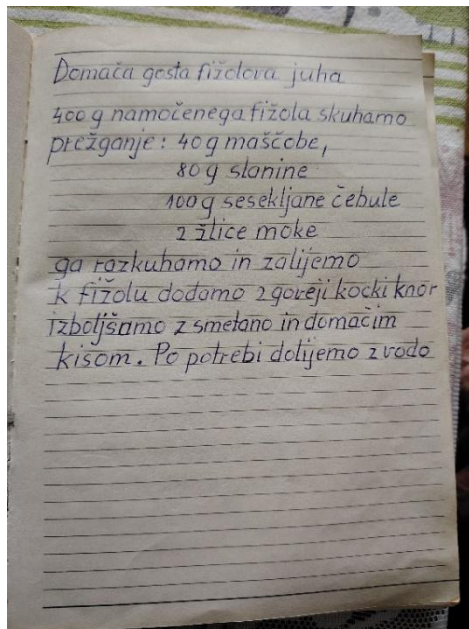 Domača gosta fižolova juha
400 g namočenega fižola skuhamo
prežganje: 40 g maščobe,
80 g slanine
100 g sesekljane čebule
2 žlice moke
ga razkuhamo in zalijemo
k fižolu dodamo 2 goveji kocki knor
izboljšamo z smetano in domačim
kisom. Po potrebi dolijemo z vodo